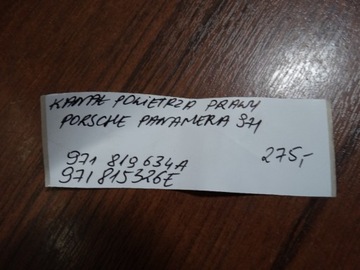 KANAŁ POWIETRZA PRAWY
PORSCHE PANAMERA 971
971 819 634A 275,-
971 815326E